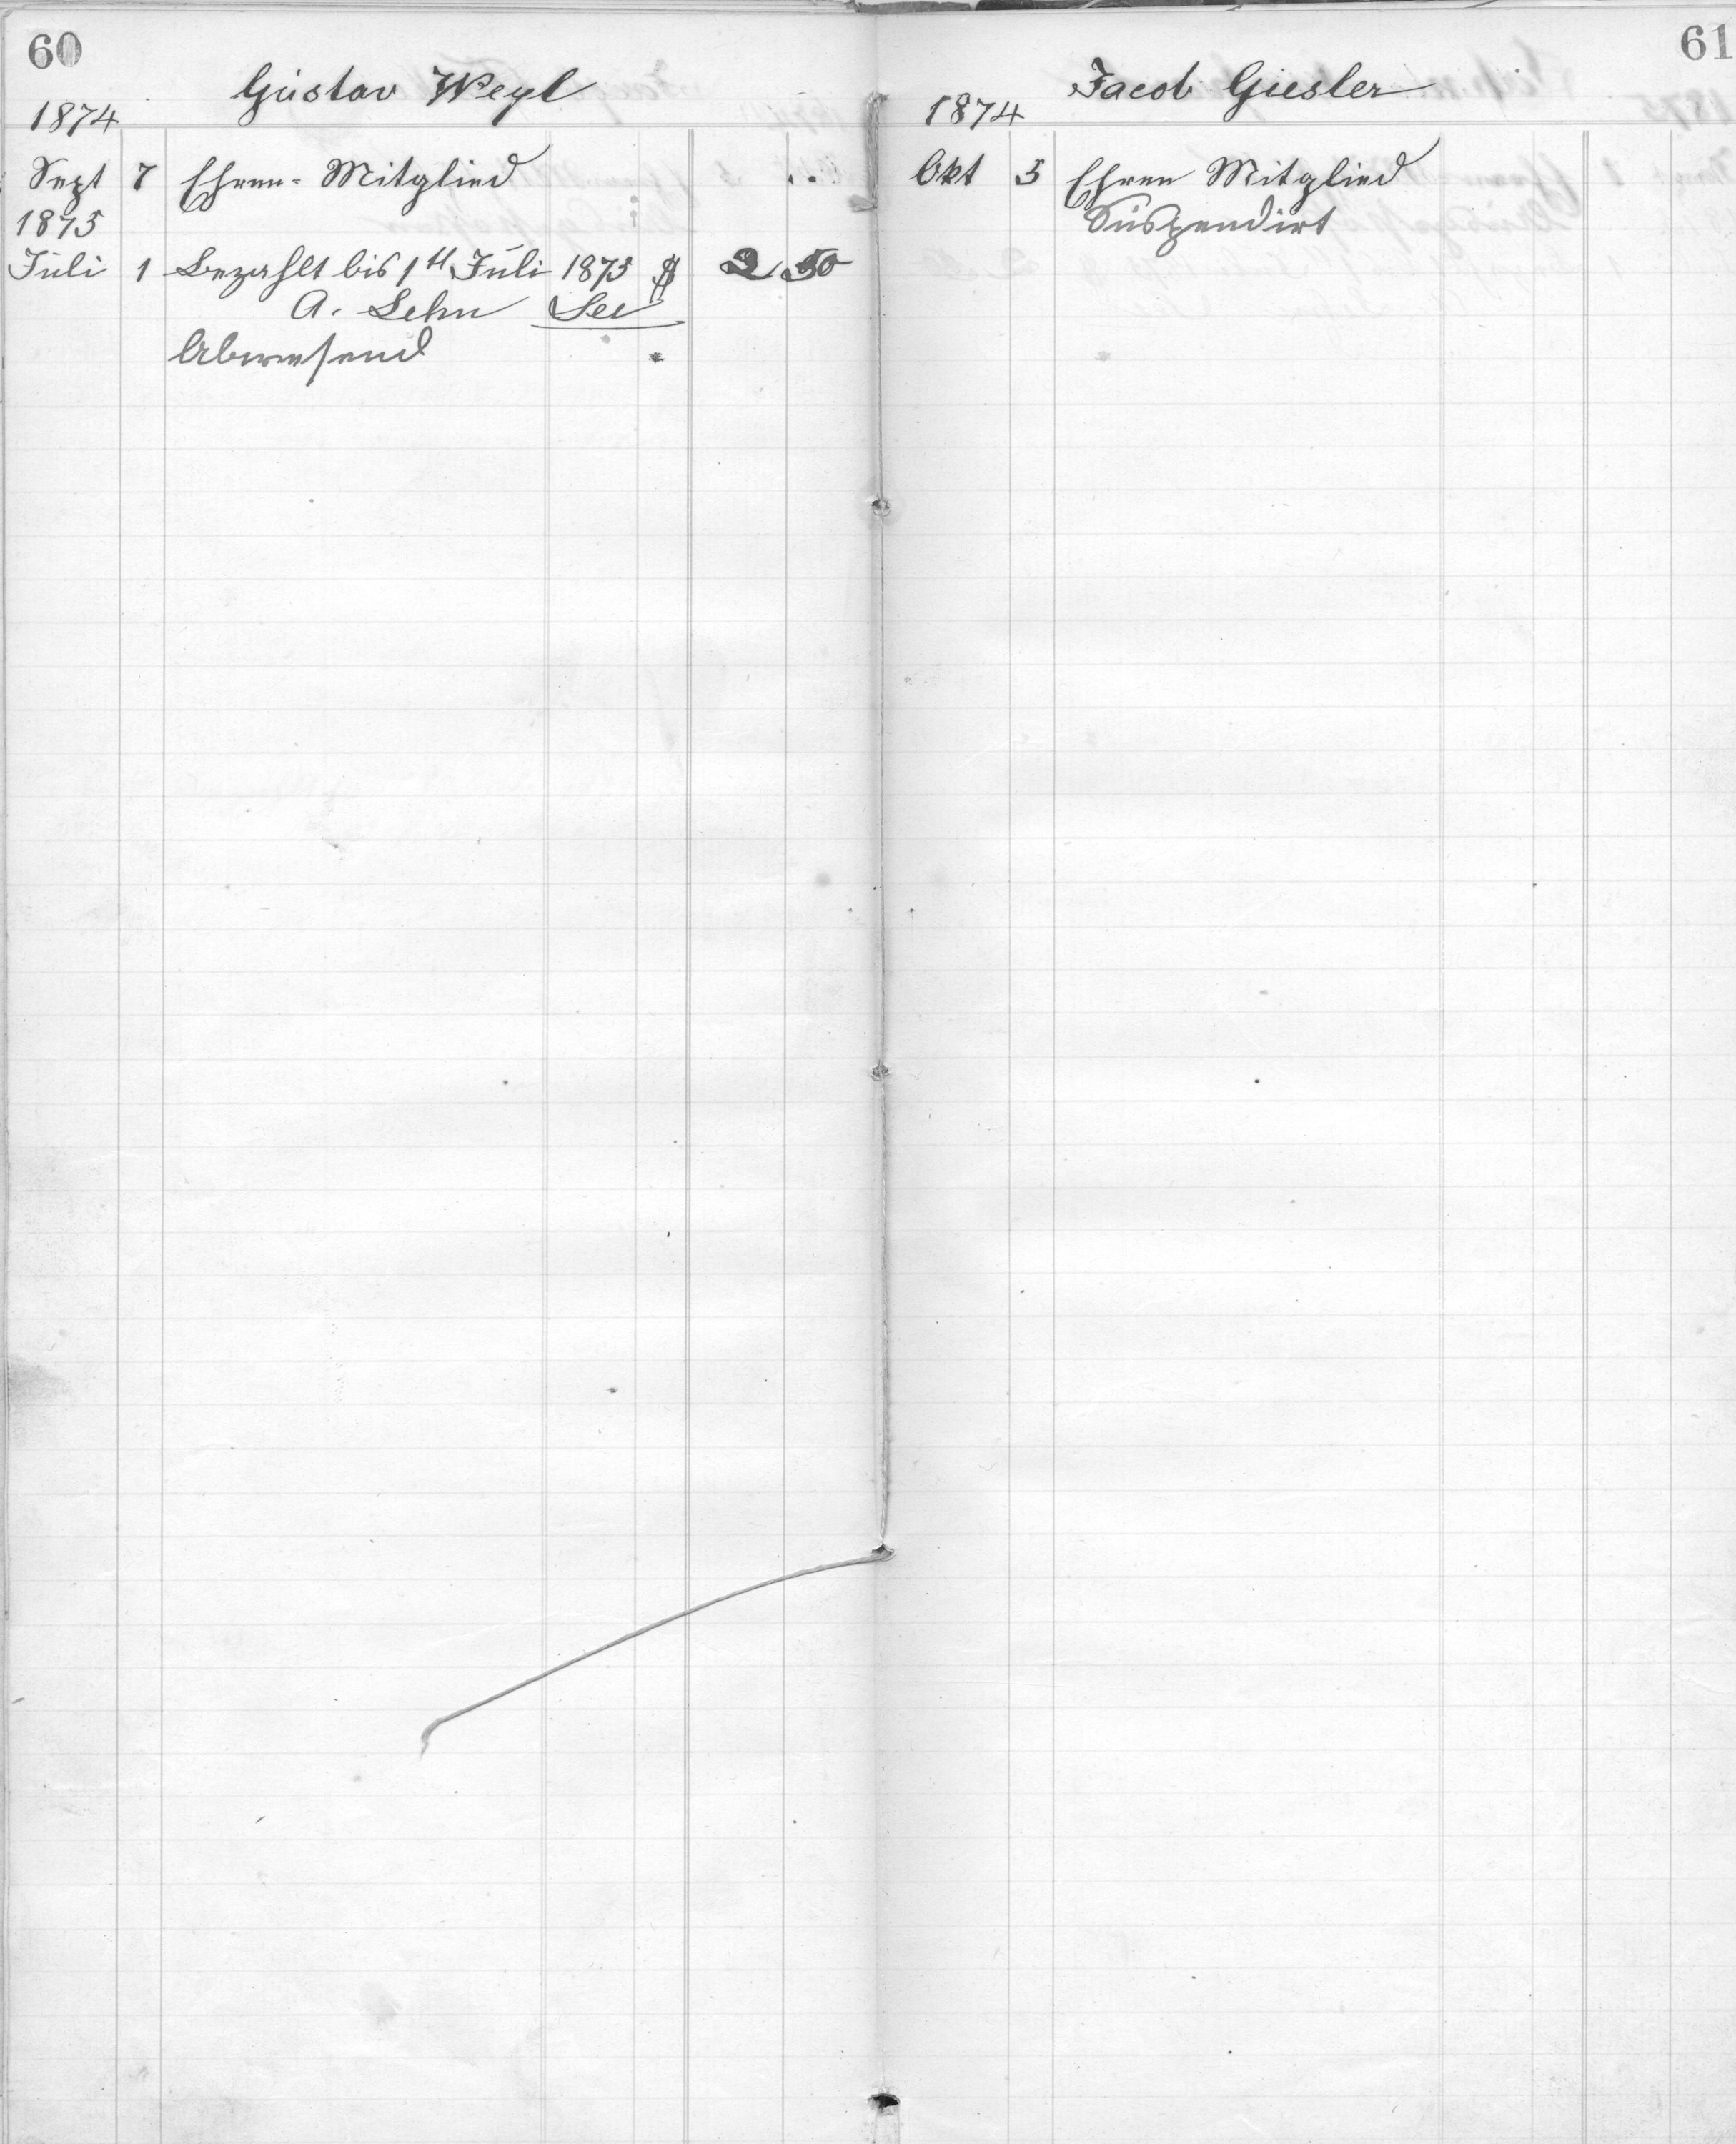 60
Gustav Weyl
1874
Sept 7 Ehren-Mitglied
1875
Juli 1 Bezahlt bis 1st Juli 1875 $ 2 50
A. Lehn Sec
Abwesend
61
Jacob Giesler
1874
Okt 5 Ehren Mitglied
Suspendirt